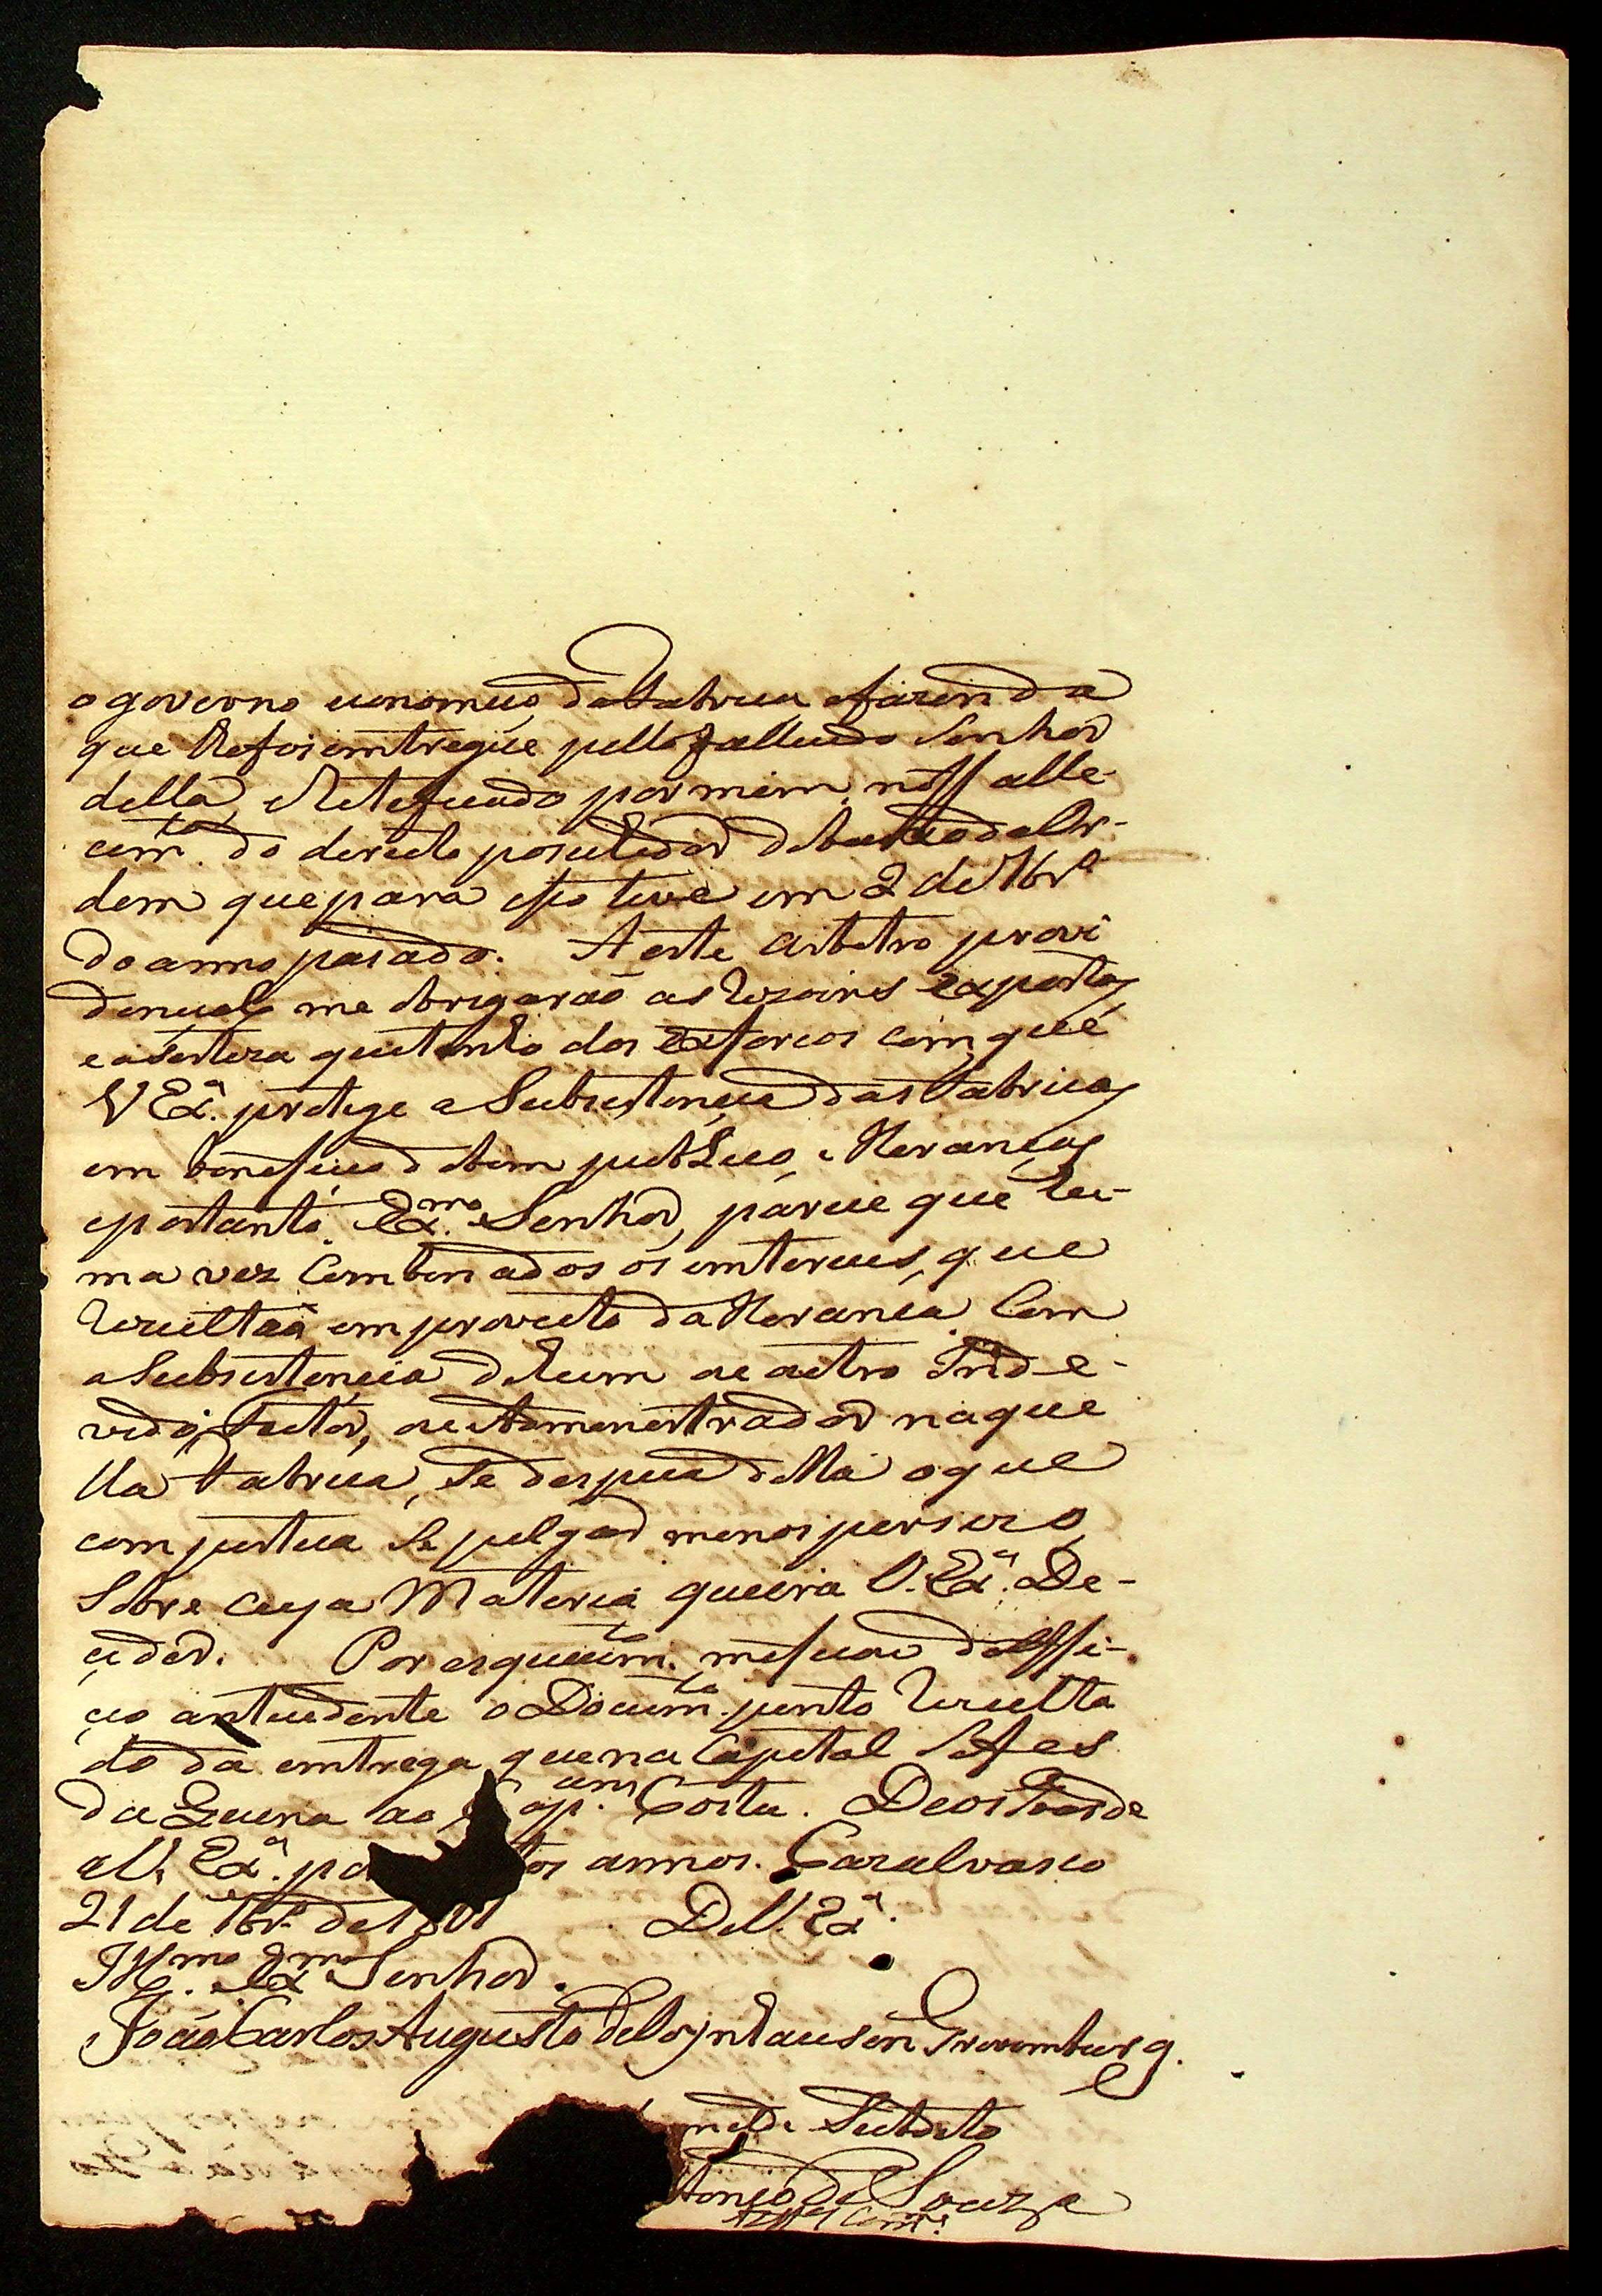 o governo economico da Fabrica e fazenda
que lhe foi emtregue pello fallecido Senhor
della e Retefecado por mim, no ffalle-
cim.to do dereito posuhedor debaicho da Or-
dem que para isso teve em 2 de 7br.o
do anno pasado. A este arbitro provi
dencial me obrigarão as rezoins expostas
e a serteza que tenho dos exforcos com que
V Ex.a protege a Subsistencia das Fabricas
em beneficio do bem publico, e Herancas
e portanto Ex.mo Senhor, parece que hu-
ma vez combinados os emterces, que
rezultão em proveito da Heranca com
a Subsistencia de hum ou outro Inde-
vido, Feitor, ou Administrador naque
lla Fabrica, se despeca della o que
com justica se julgar menos perciso,
sobre cuja Materia queira V. Ex.a De-
cidir. Por esquecim.to me ficou do Offi-
cio antecedente o Docum.to junto rezulta
do da emtrega que na Capital se fes
da Guerra ao Cap.am Costa. Deos Guarde
a V. Ex.a po tos annos. Cazalvasco
21 de 7br.o de 1801 De V. Ex.a
Ill.mo Ex.mo Senhor.
João Carlos Augusto de Oeynhausen Grevemburg.
milde Subdito
tonio de Souza